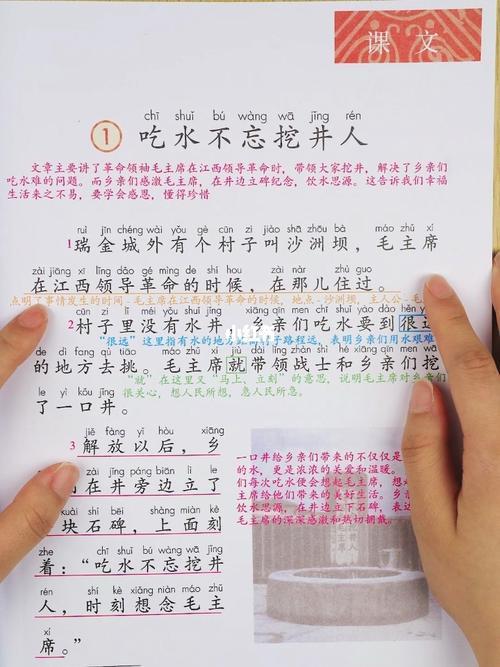 课文
chī shuǐ bú wàng wā jǐng rén
1 吃水不忘挖井人
文章主要讲了革命领袖毛主席在江西领导革命时，带领大家挖井，解决了乡亲们
吃水难的问题。而乡亲们感激毛主席，在井边立碑纪念，饮水思源。这告诉我们幸福
生活来之不易，要学会感恩，懂得珍惜
ruì jīn chéng wài yǒu gè cūn zi jiào shā zhōu bà máo zhǔ xí
1瑞金城外有个村子叫沙洲坝，毛主席
zài jiāng xī lǐng dǎo gé mìng de shí hou zài nàr zhù guo
在江西领导革命的时候，在那儿住过。
点明了事情发生的时间-毛主席在江西领导革命的时候，地点-沙洲坝，主人公-毛
cūn zi lǐ méi yǒu shuǐ jǐng xiāng qīn men chī shuǐ yào dào hěn yuǎn
2村子里没有水井，乡亲们吃水要到很远
“很远”这里指有水的地方 路程远，表明乡亲们用水艰难
de dì fang qù tiāo máo zhǔ xí jiù dài lǐng zhàn shì hé xiāng qīn men wā
的地方去挑。毛主席就带领战士和乡亲们挖
“就”在这里又“马上、立刻”的意思，说明毛主席对乡亲们
很关心，想人民所想，急人民所急。
le yì kǒu jǐng
了一口井。
jiě fàng yǐ hòu xiāng
3 解放以后，乡
zài jǐng páng biān lì le
们在井旁边立了
kuài shí bēi shàng miàn kè
块石碑，上面刻
zhe chī shuǐ bú wàng wā jǐng
着：“吃水不忘挖井
rén shí kè xiǎng niàn máo zhǔ
人，时刻想念毛主
xí
席。”
一口井给乡亲们带来的不仅仅是
的水，更是浓浓的关爱和温暖。
们每次吃水便会想起毛主席，想
主席给他们带来的美好生活。乡
饮水思源，在井边立下石碑，表达
毛主席的深深感激和热切拥戴。
小红书